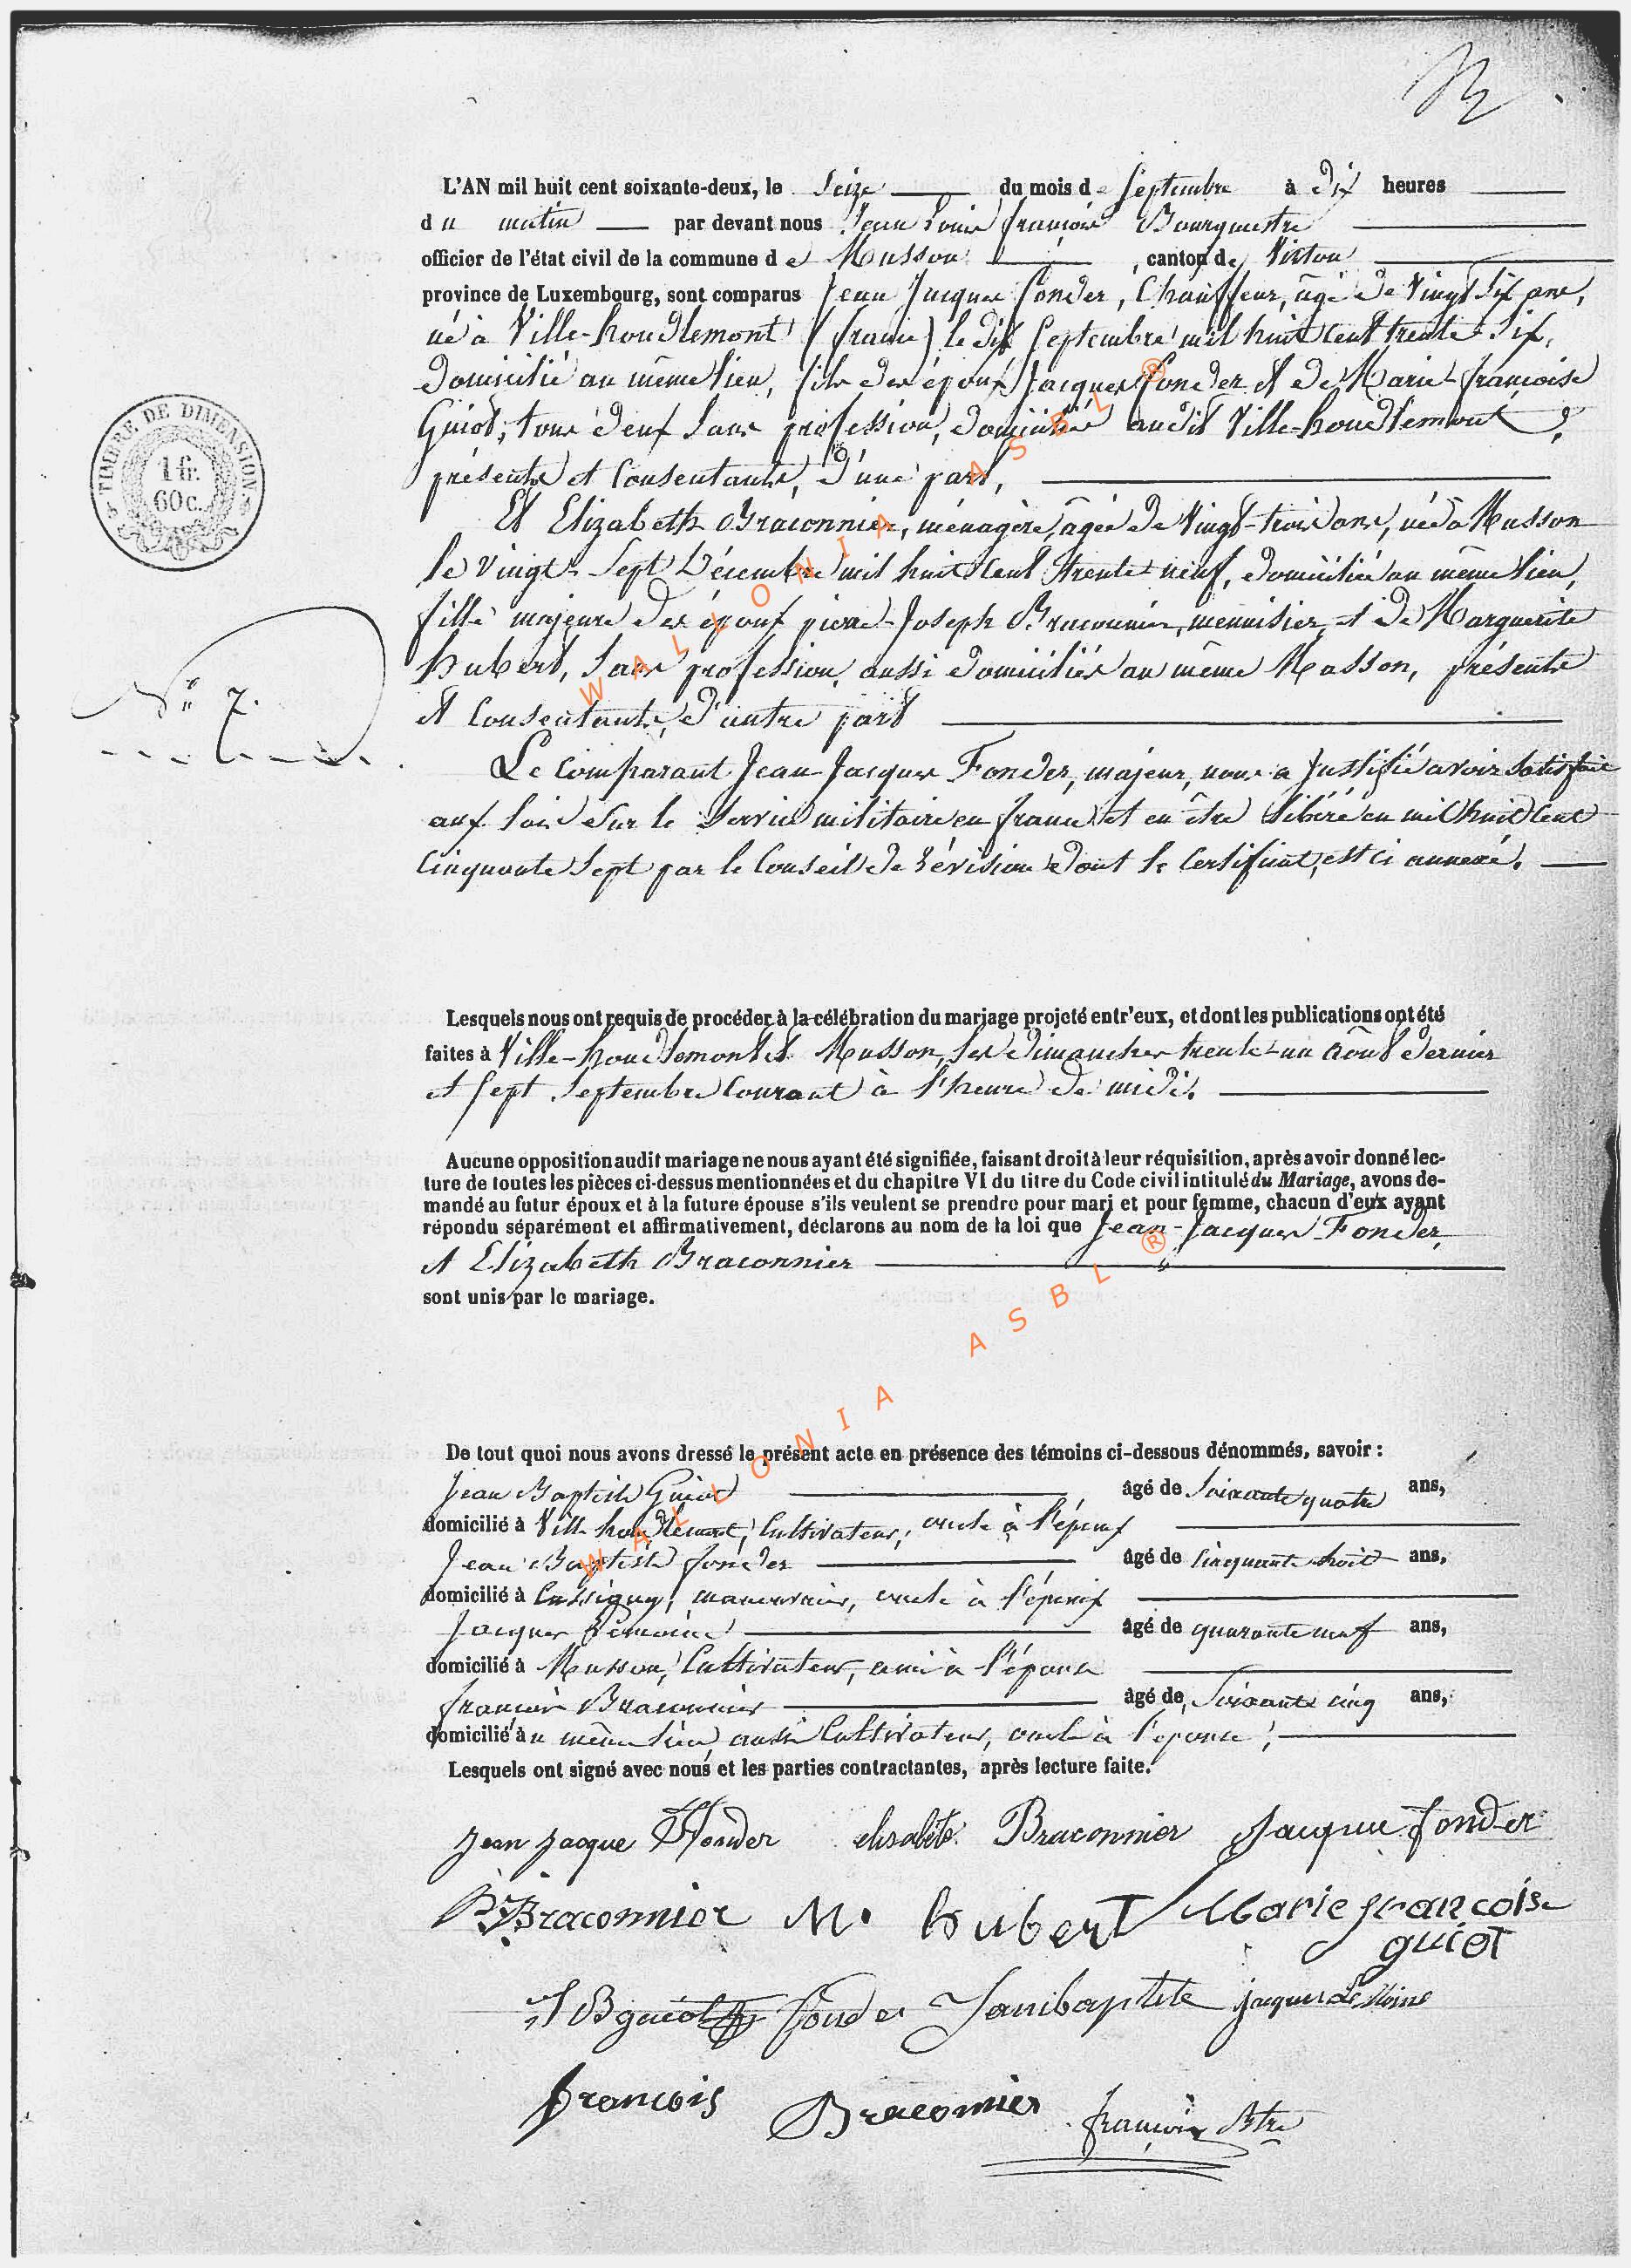 L'AN mil huit cent soixante-deux, le Seize du mois de Septembre à dix heures
du matin par devant nous Jean Louis françois Bourgmestre
officier de l'état civil de la commune de Musson, canton de Virton
province de Luxembourg, sont comparus Jean Jacques Fonder, Chauffeur, âgé de Vingt Six ans,
né à Ville-houdlemont (france) le dix Septembre mil huit cent trente-Six,
domicilié au même lieu, fils des époux Jacques Fonder et de Marie-françoise
Guiot, tous deux Sans profession, domiciliés audit Ville-houdlemont,
présents et Consentants, d'une part,
Et Elizabeth Braconnier, ménagère, âgée de Vingt-trois ans, née à Musson
le Vingt-Sept Décembre mil huit Cent trente-neuf, domiciliée au même lieu,
fille majeure des époux pierre-Joseph Braconnier, menuisier, et de Marguerite
hubert, Sans profession, aussi domiciliés au même Musson, présents
et Consentants, d'autre part
N° 7.
Le Comparant Jean-Jacques Fonder, majeur, nous a Justifié avoir Satisfait
aux Lois Sur le Service militaire en france et en être libéré en mil huit Cent
Cinquante Sept par le Conseil de révision dont le Certificat, est ci annexé.
TIMBRE DE DIMENSION
1 fr.
60 c.
Lesquels nous ont requis de procéder à la célébration du mariage projeté entr'eux, et dont les publications ont été
faites à Ville-houdlemont et Musson, les dimanches trente-un Août dernier
et Sept Septembre Courant à l'heure de midi.
Aucune opposition audit mariage ne nous ayant été signifiée, faisant droit à leur réquisition, après avoir donné lec-
ture de toutes les pièces ci-dessus mentionnées et du chapitre VI du titre du Code civil intitulé du Mariage, avons de-
mandé au futur époux et à la future épouse s'ils veulent se prendre pour mari et pour femme, chacun d'eux ayant
répondu séparément et affirmativement, déclarons au nom de la loi que Jean-Jacques Fonder,
et Elizabeth Braconnier
sont unis par le mariage.
De tout quoi nous avons dressé le présent acte en présence des témoins ci-dessous dénommés, savoir :
Jean Baptiste Guiot âgé de Soixante quatre ans,
domicilié à Ville houdlemont, Cultivateur, oncle à l'époux
Jean Baptiste fonder âgé de Cinquante huit ans,
domicilié à Cussigny, manoeuvrier, oncle à l'époux
Jacques Lemoine âgé de quarante neuf ans,
domicilié à Musson, Cultivateur, ami à l'épouse
françois Braconnier âgé de Soixante cinq ans,
domicilié au même lieu, aussi Cultivateur, oncle à l'épouse,
Lesquels ont signé avec nous et les parties contractantes, après lecture faite.
Jean Jacque Fonder elisabete Braconnier Jacque fonder
PJ Braconnier M. hubert Marie francoise
guiot
J B guiot fonder Janibaptite jacques Le Moine
francois Braconnier françois Btre
WALLONIA ASBL ®
WALLONIA ASBL ®